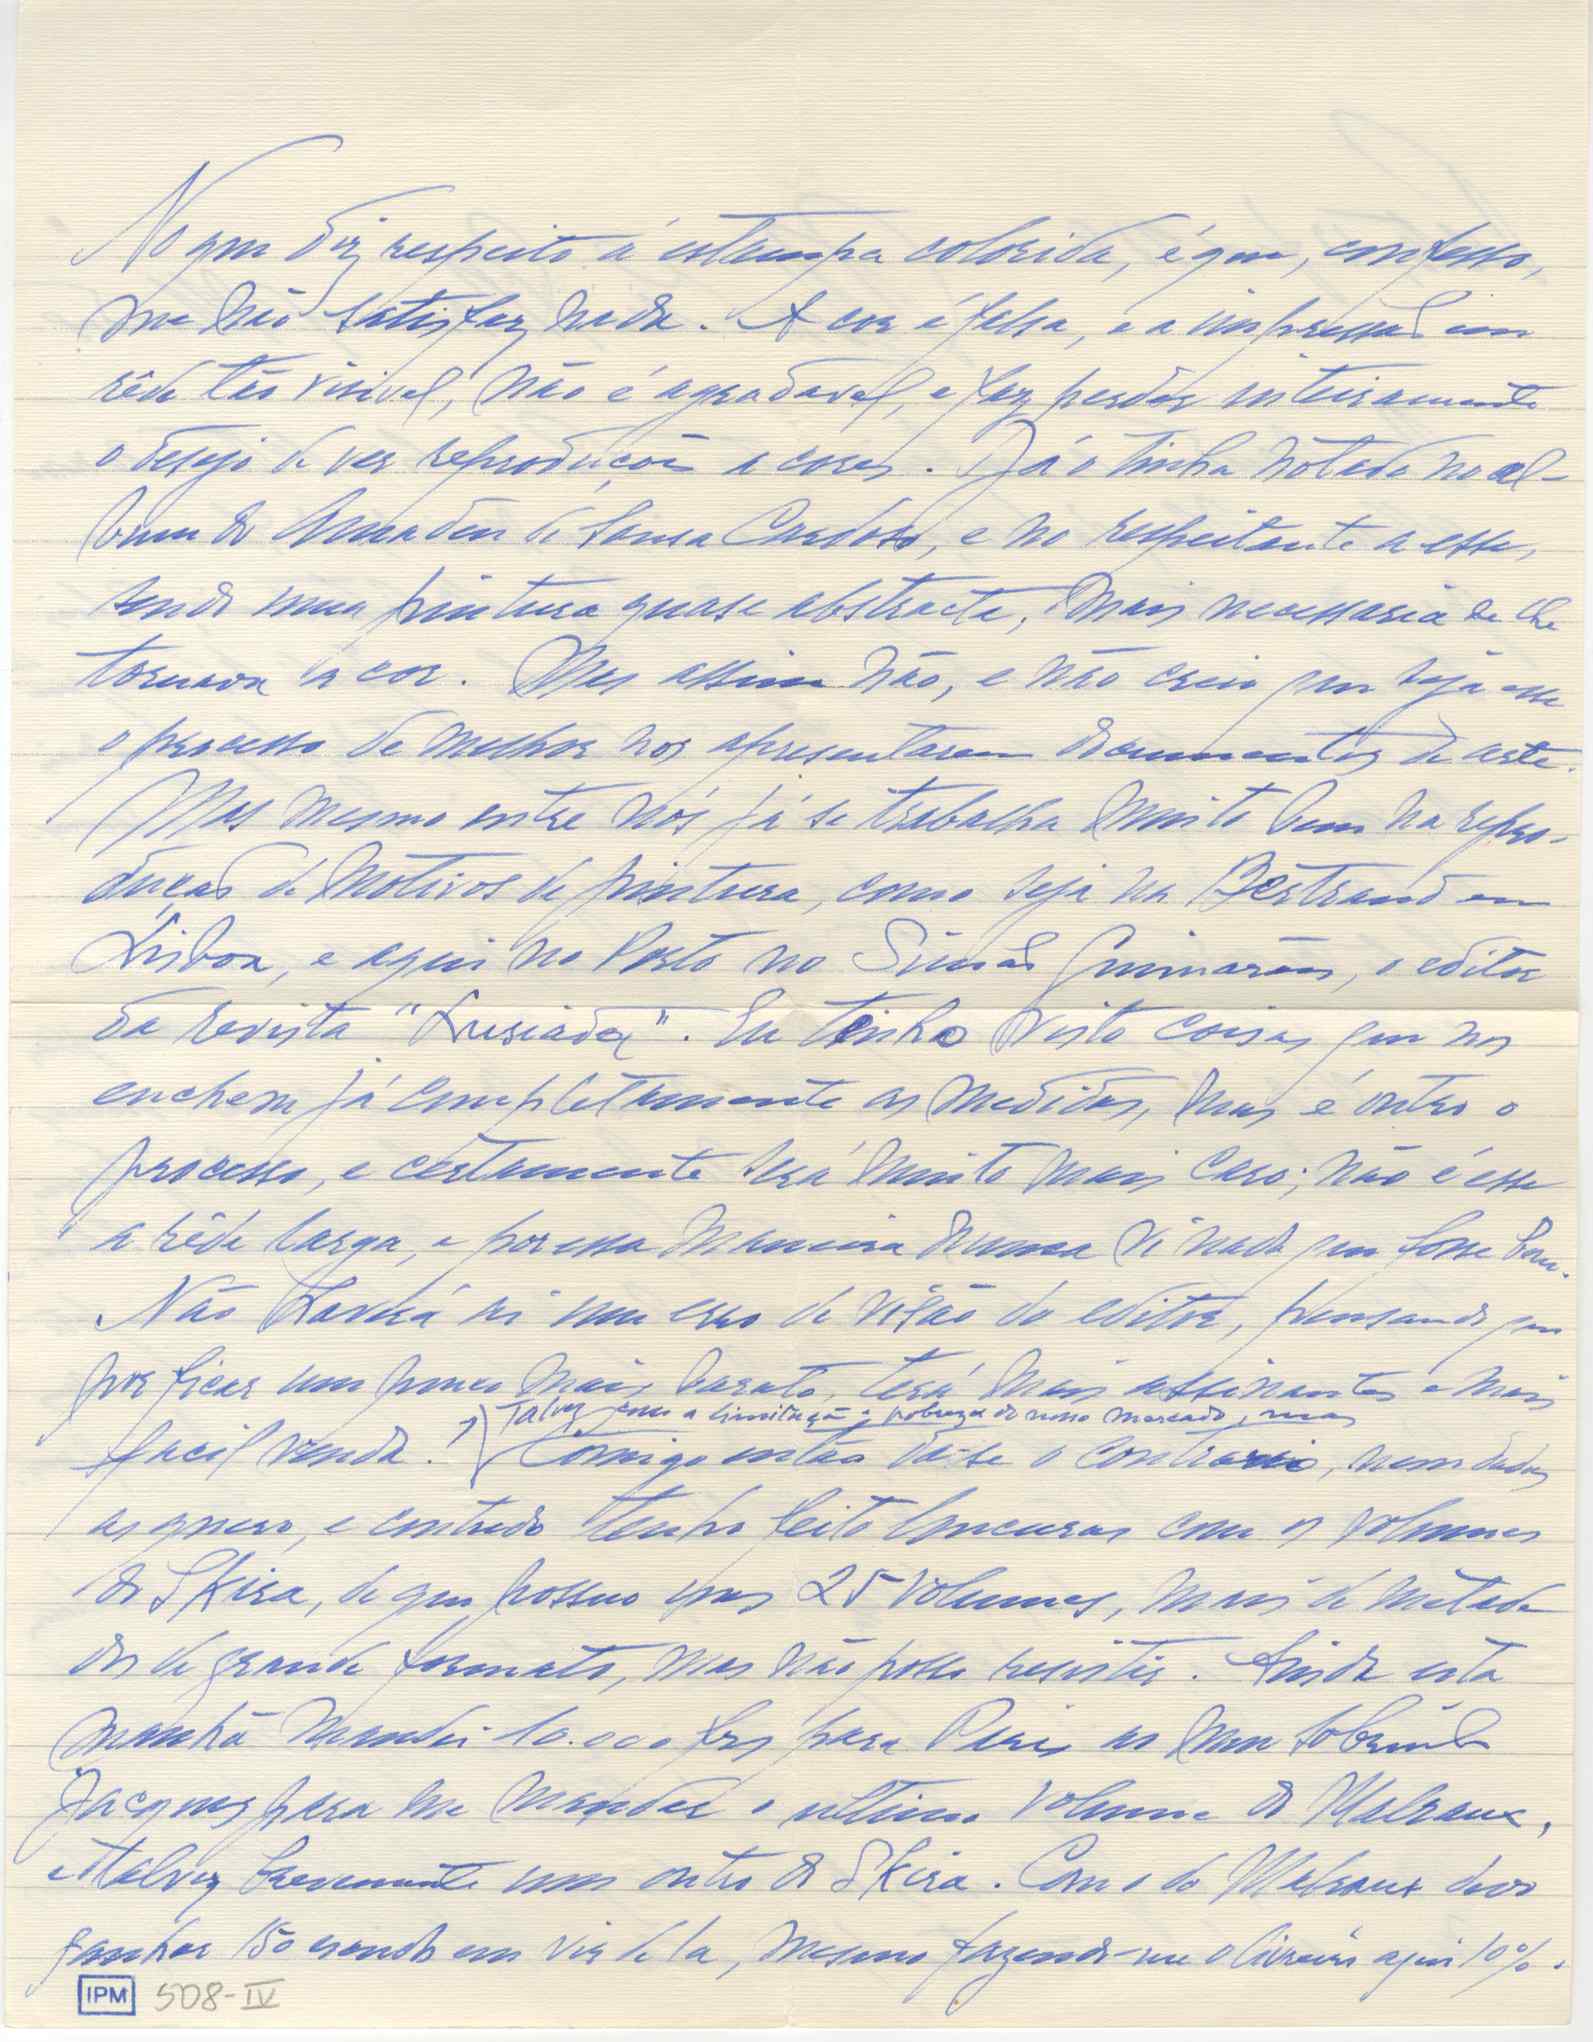 No que diz respeito á estampa colorida, é que, confesso,
me não satisfaz nada. A cor é falsa, e a impressão em
rêde tão visivel, não é agradavel, e faz perder inteiramente
o desejo de ver reproduções a cores. Já o tinha notado no al-
bum do Amadeu de Sousa Cardoso, e no respeitante a esse,
sendo uma pintura quase abstracta, mais necessaria se lhe
tornava a cor. Mas assim não, e não creio que seja esse
o processo de melhor nos apresentarem documentos de arte.
Mas mesmo entre nós já se trabalha muito bem na repro-
dução de motivos de pintura, como seja na Bertrand em
Lisboa, e aqui no Porto no Simão Guimarães, o editor
da revista "Lusiada". Eu tenho visto coisas que nos
enchem já completamente as medidas, mas é outro o
processo, e certamente será muito mais caro; não é esse
a rêde larga, e por essa maneira nunca vi nada que fosse bom.
Não haverá aí um erro de visão do editor, pensando que
por ficar um pouco mais barato, terá mais assinantes e mais
facil venda. ?) Talvez com a limitação e pobreza do nosso mercado, mas
Comigo então dá-se o contrario, nem dadas
as quero, e contudo tenho feito loucuras com os volumes
do Skira, de que possuo uns 25 volumes, mais de metade
dos de grande formato, mas não posso resistir. Ainda esta
manhã mandei 10.000 frs para Paris ao meu sobrinho
Jacques para me mandar o ultimo volume do Malraux,
e talvez brevemente um outro do Skira. Com o do Malraux devo
ganhar 150 escudos em vir de la, mesmo fazendo-me o livreiro aqui 10%.
IPM 508-IV